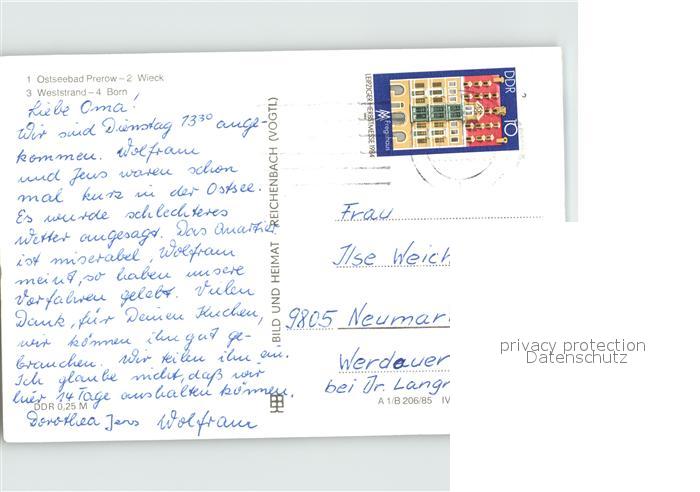 1 Ostseebad Prerow – 2 Wieck
3 Weststrand – 4 Born
Liebe Oma!
Wir sind Dienstag 13³⁰ ange-
kommen. Wolfram
und Jens waren schon
mal kurz in der Ostsee.
Es wurde schlechteres
Wetter angesagt. Das Quartier
ist miserabel, Wolfram
meint, so haben unsere
Vorfahren gelebt. Vielen
Dank, für Deinen Kuchen,
wir können ihn gut ge-
brauchen. Wir teilen ihn ein.
Ich glaube nicht, daß wir
hier 14 Tage aushalten können.
Dorothea Jens Wolfram
DDR 0,25 M
BILD UND HEIMAT REICHENBACH (VOGTL)
DDR
10
LEIPZIGER HERBSTMESSE 1984
Frau
Ilse Weich
9805 Neumar
Werdauer
bei Dr. Langr
A 1/B 206/85 IV
privacy protection
Datenschutz